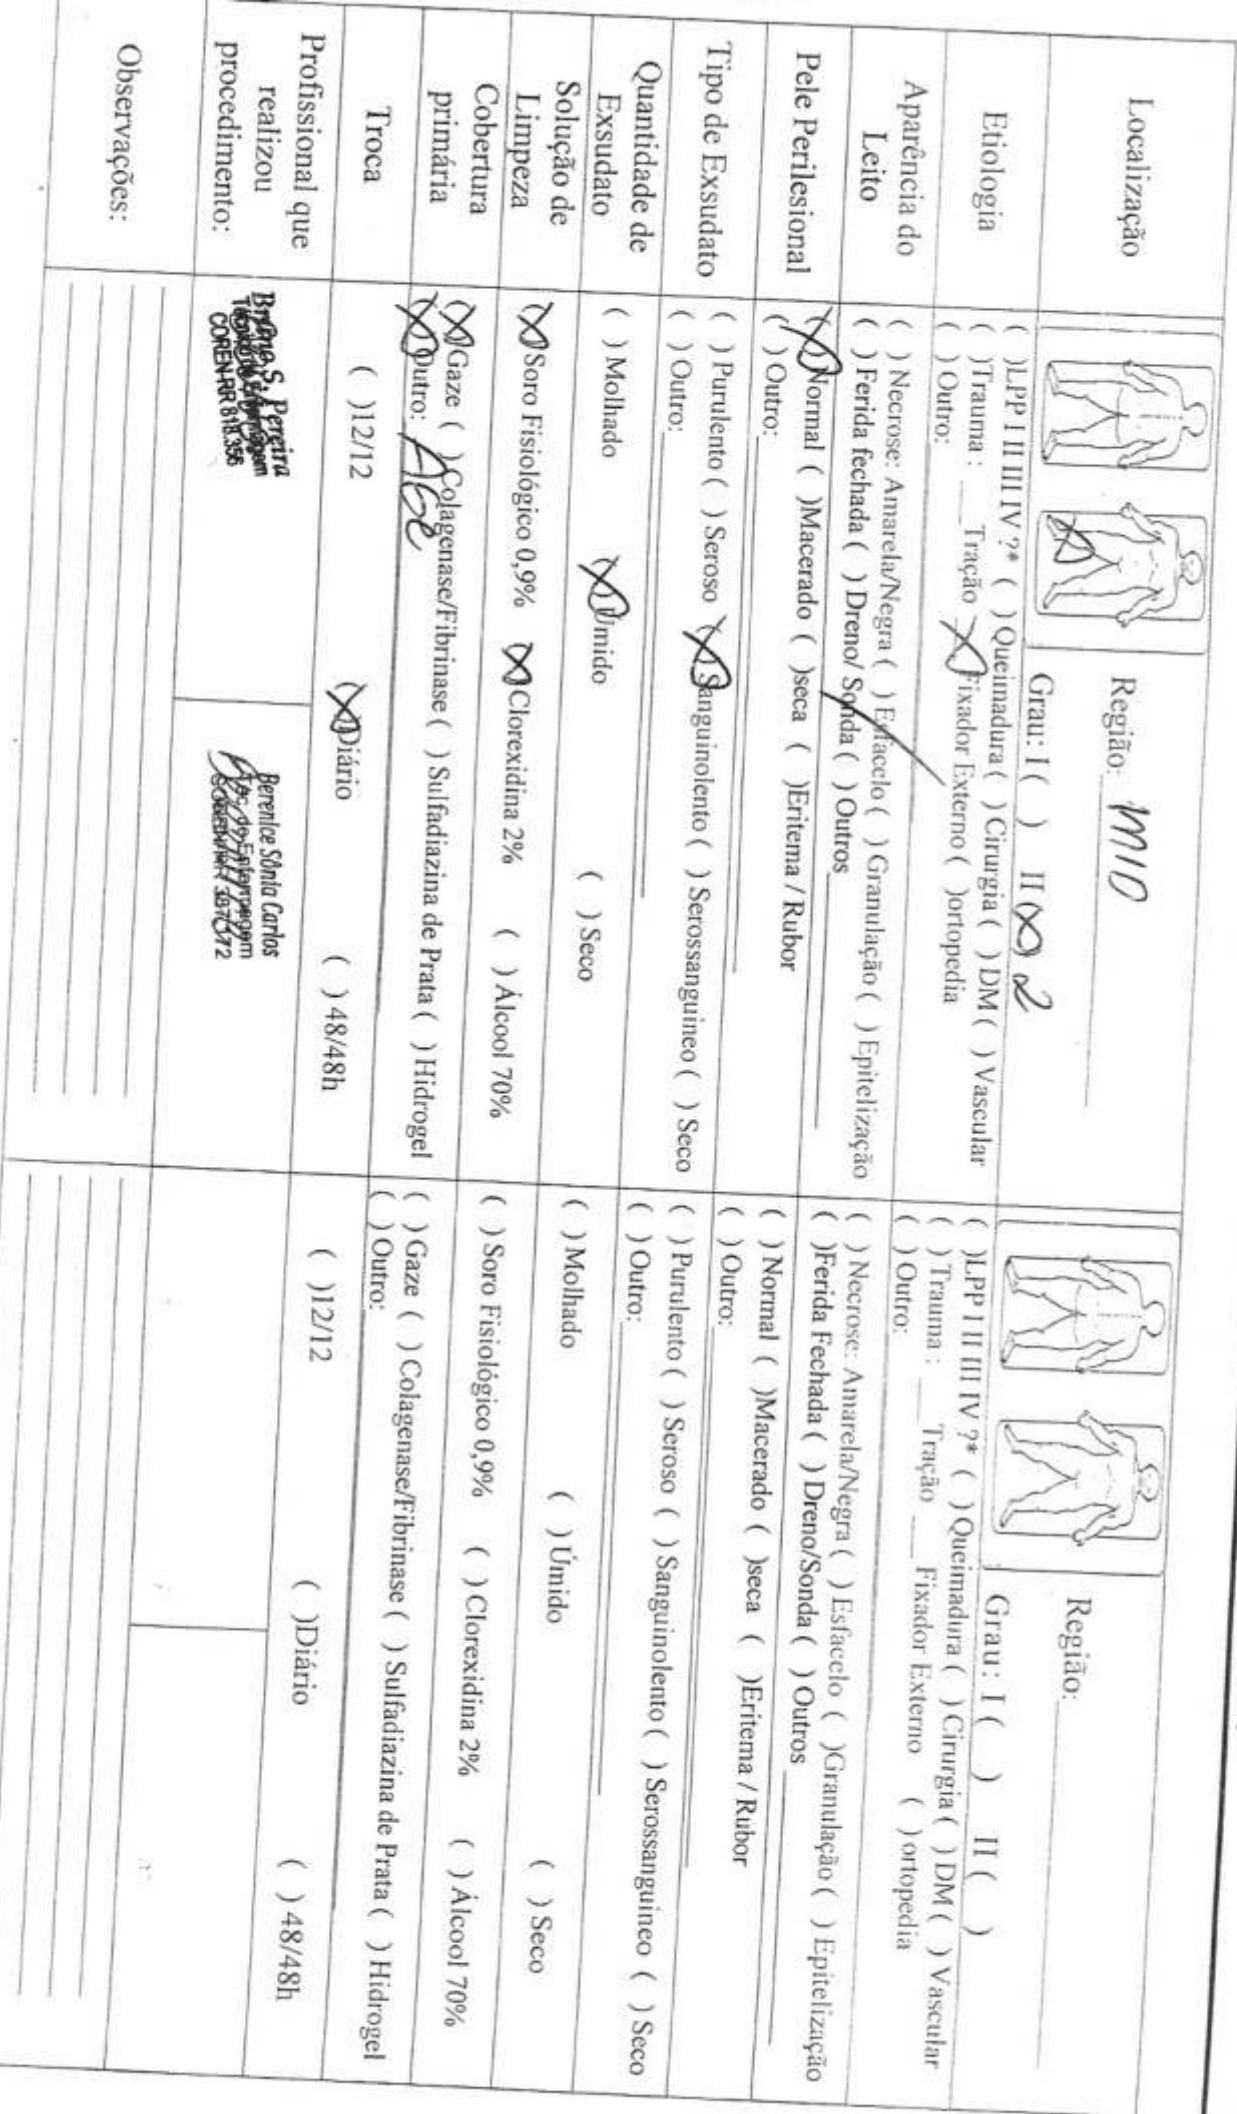 Localização
Região: MID
Grau: I ( ) II (X) 2
Região:
Grau: I ( ) II ( )
Etiologia
( )LPP I II III IV ?* ( )Queimadura ( )Cirurgia ( )DM ( )Vascular
( )Trauma : ___Tração _X_Fixador Externo ( )ortopedia
( )Outro:
( )LPP I II III IV ?* ( )Queimadura ( )Cirurgia ( )DM ( )Vascular
( )Trauma : ___Tração ___Fixador Externo ( )ortopedia
( )Outro:
Aparência do
Leito
( ) Necrose: Amarela/Negra ( ) Esfacelo ( ) Granulação ( ) Epitelização
( ) Ferida fechada ( ) Dreno/ Sonda ( ) Outros
( ) Necrose: Amarela/Negra ( ) Esfacelo ( )Granulação ( ) Epitelização
( )Ferida Fechada ( ) Dreno/Sonda ( ) Outros
Pele Perilesional
(X)Normal ( )Macerado ( )seca ( )Eritema / Rubor
( )Outro:
( ) Normal ( )Macerado ( )seca ( )Eritema / Rubor
( )Outro:
Tipo de Exsudato
( ) Purulento ( ) Seroso (X)Sanguinolento ( ) Serossanguineo ( ) Seco
( )Outro:
( ) Purulento ( ) Seroso ( )Sanguinolento ( ) Serossanguineo ( ) Seco
( )Outro:
Quantidade de
Exsudato
( ) Molhado (X)Úmido ( ) Seco
( ) Molhado ( ) Úmido ( ) Seco
Solução de
Limpeza
(X)Soro Fisiológico 0,9% (X)Clorexidina 2% ( ) Álcool 70%
( ) Soro Fisiológico 0,9% ( )Clorexidina 2% ( ) Álcool 70%
Cobertura
primária
(X)Gaze ( )Colagenase/Fibrinase ( ) Sulfadiazina de Prata ( ) Hidrogel
(X)Outro: AGE
( )Gaze ( ) Colagenase/Fibrinase ( ) Sulfadiazina de Prata ( ) Hidrogel
( )Outro:
Troca
( )12/12 (X)Diário ( ) 48/48h
( )12/12 ( )Diário ( ) 48/48h
Profissional que
realizou
procedimento:
S. Pereira
COREN-RR 818.356
Berenice Sônia Carlos
Téc. de Enfermagem
Observações: